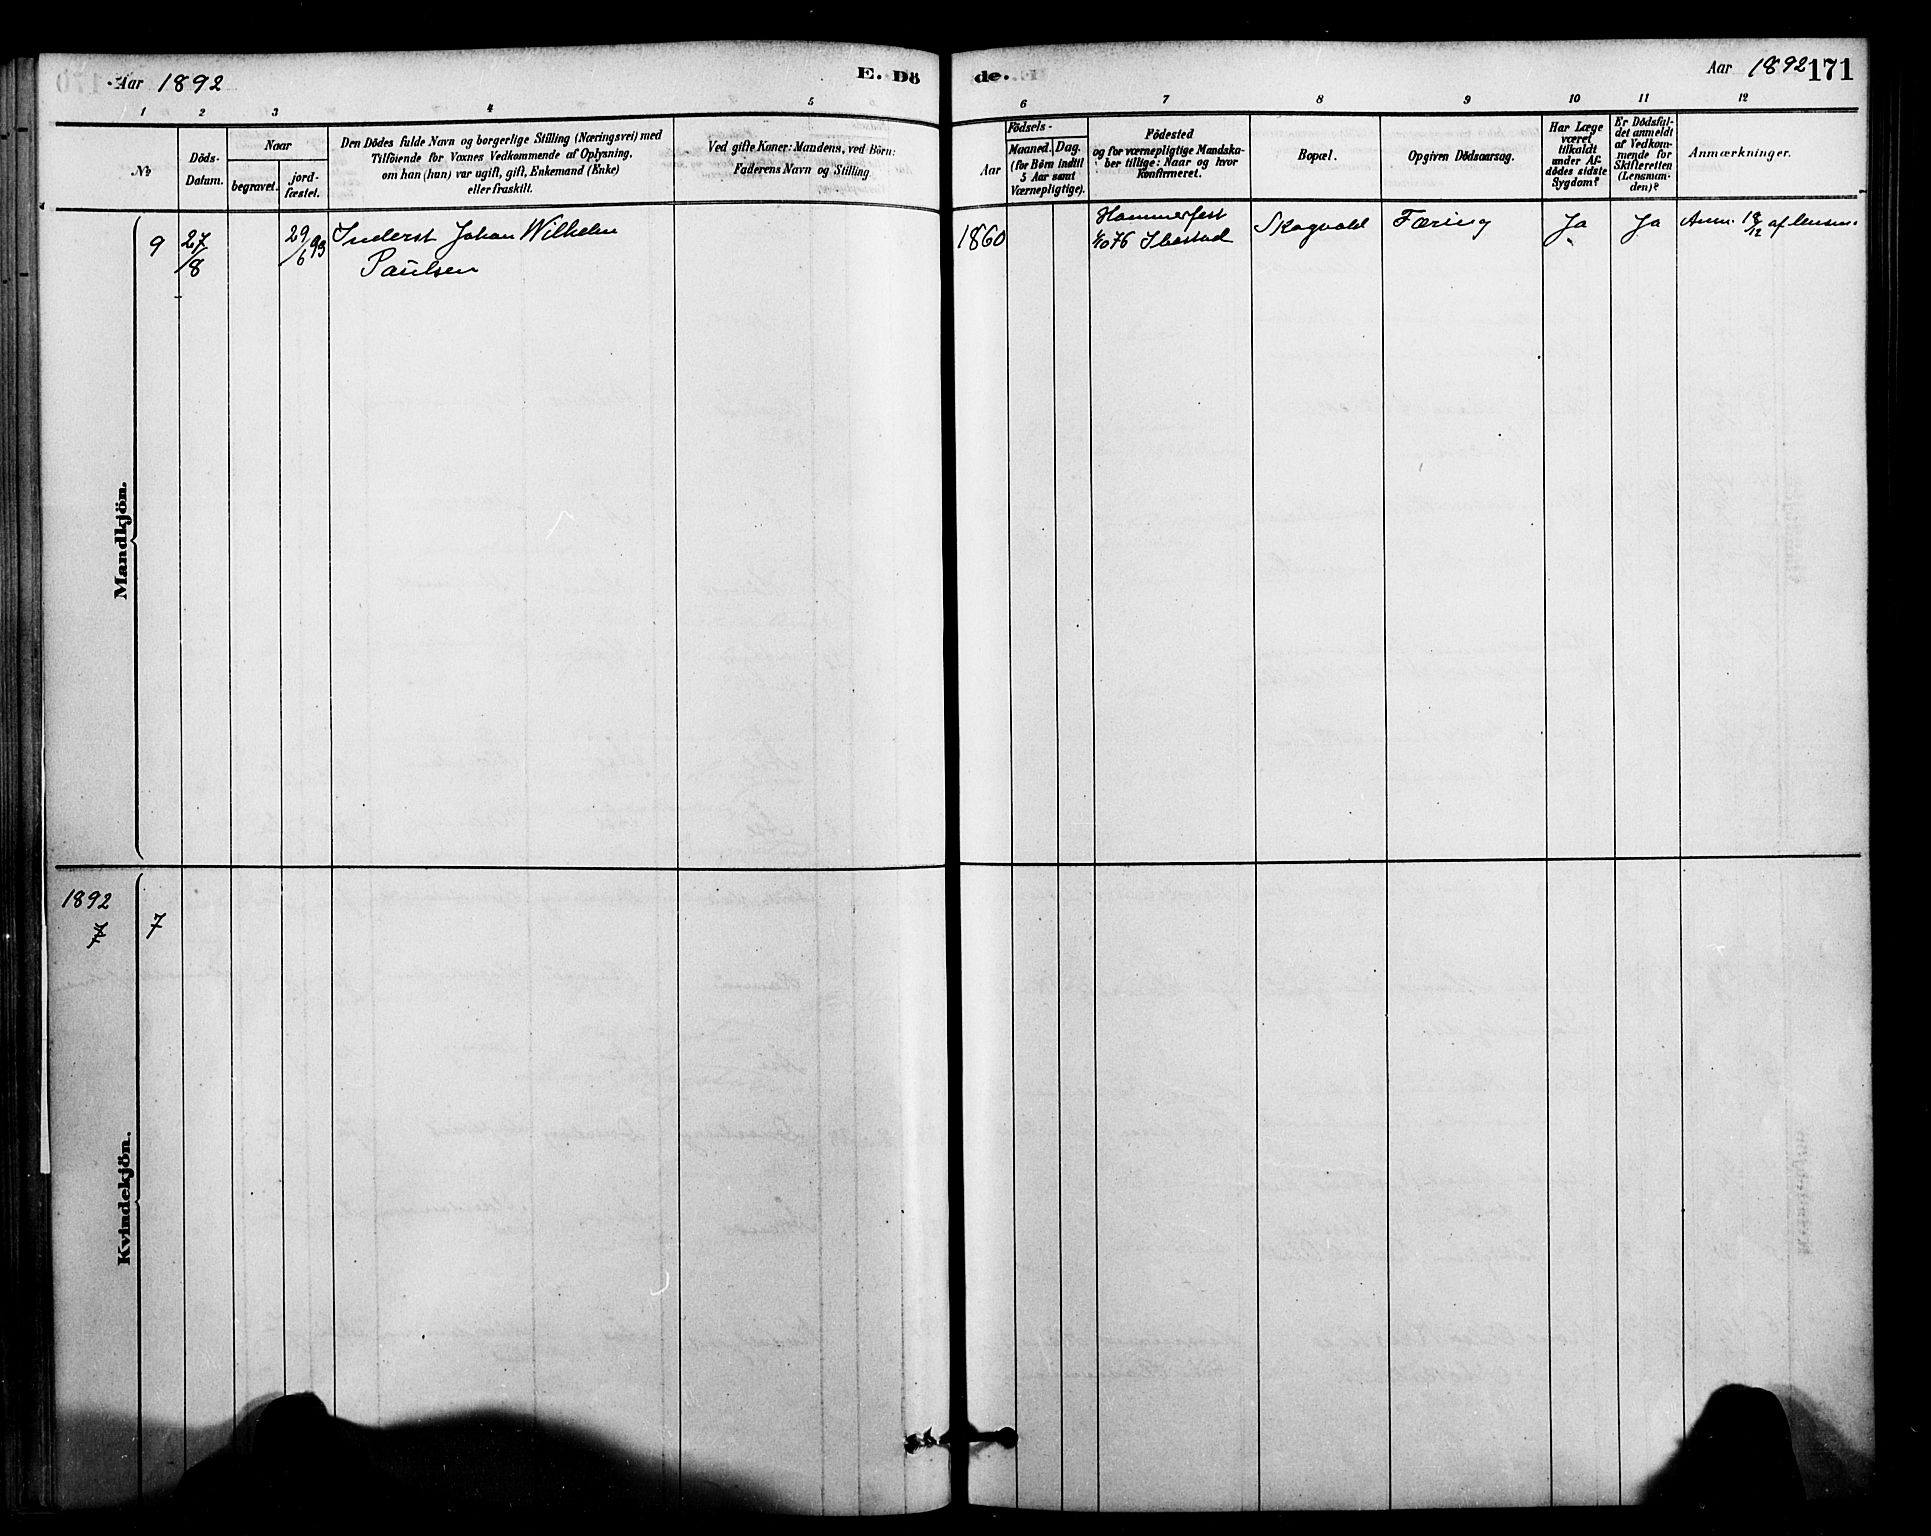 Aar 1892
E. Dö
de.
Aar 1892
171
1 2 3 4 5 6 7 8 9 10 11 12
No
Döds-
Datum.
Naar
begravet.
jord-
fæstet.
Den Dödes fulde Navn og borgerlige Stilling (Næringsvei) med
Tilföiende for Voxnes Vedkommende af Oplysning,
om han (hun) var ugift, gift, Enkemand (Enke)
eller fraskilt.
Ved gifte Koner: Mandens, ved Börn:
Faderens Navn og Stilling
Aar
Födsels-
Maaned. Dag.
(for Börn indtil
5 Aar samt
Værnepligtige).
Födested
og for værnepligtige Mandska-
ber tillige: Naar og hvor
Konfirmeret.
Bopæl.
Opgiven Dödsaarsag.
Har Læge
været
tilkaldt
under Af-
dödes sidste
Sygdom?
Er Dödsfal-
det anmeldt
af Vedkom-
mende for
Skifteretten
(Lensman-
den)?
Anmærkninger.
Mandkjön.
9 27/8 29/6 93 Inderst Johan Wilhelm
Paulsen
1860
Hammerfest
76 Ibestad
Skogvold
Tæring
Ja
Ja
Anm. 18/12 af lensm.
1892
7
Kvindekjön.